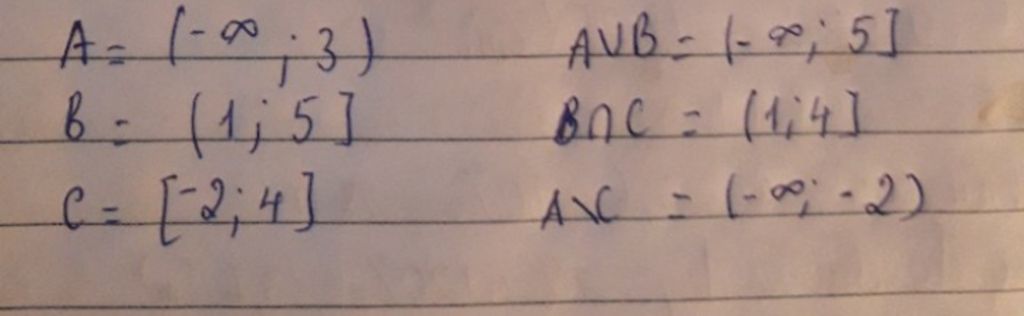 A = (-∞ ; 3) A∪B = (-∞; 5]
B = (1; 5] B∩C = (1; 4]
C = [-2; 4] A\C = (-∞; -2)